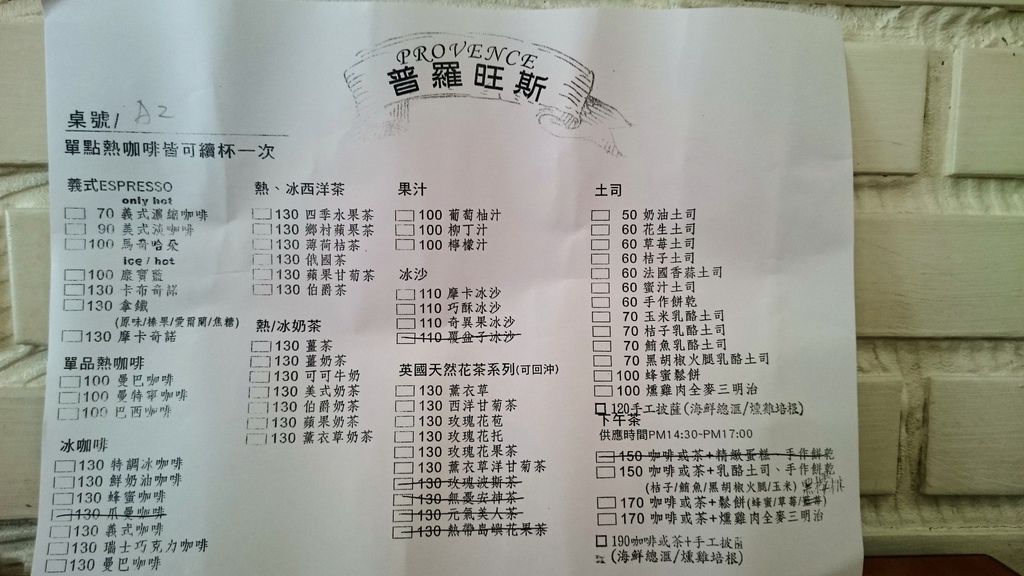 PROVENCE
普羅旺斯
桌號/ A2
單點熱咖啡皆可續杯一次
義式ESPRESSO
only hot
70 義式濃縮咖啡
90 美式淡咖啡
100 馬奇哈朵
ice / hot
100 康寶藍
130 卡布奇諾
130 拿鐵
(原味/榛果/愛爾蘭/焦糖)
130 摩卡奇諾
單品熱咖啡
100 曼巴咖啡
100 曼特寧咖啡
100 巴西咖啡
冰咖啡
130 特調冰咖啡
130 鮮奶油咖啡
130 蜂蜜咖啡
130 爪曼咖啡
130 義式咖啡
130 瑞士巧克力咖啡
130 曼巴咖啡
熱、冰西洋茶
130 四季水果茶
130 鄉村蘋果茶
130 薄荷桔茶
130 俄國茶
130 蘋果甘菊茶
130 伯爵茶
熱/冰奶茶
130 薑茶
130 薑奶茶
130 可可牛奶
130 美式奶茶
130 伯爵奶茶
130 蘋果奶茶
130 薰衣草奶茶
果汁
100 葡萄柚汁
100 柳丁汁
100 檸檬汁
冰沙
110 摩卡冰沙
110 巧酥冰沙
110 奇異果冰沙
110 覆盆子冰沙
英國天然花茶系列(可回沖)
130 薰衣草
130 西洋甘菊茶
130 玫瑰花苞
130 玫瑰花托
130 玫瑰花果茶
130 薰衣草洋甘菊茶
130 玫瑰波斯茶
130 無憂安神茶
130 元氣美人茶
130 熱帶島嶼花果茶
土司
50 奶油土司
60 花生土司
60 草莓土司
60 桔子土司
60 法國香蒜土司
60 蜜汁土司
60 手作餅乾
70 玉米乳酪土司
70 桔子乳酪土司
70 鮪魚乳酪土司
70 黑胡椒火腿乳酪土司
100 蜂蜜鬆餅
100 燻雞肉全麥三明治
120手工披薩(海鮮總滙/燻雞培根)
下午茶
供應時間PM14:30-PM17:00
150 咖啡或茶+精緻蛋糕、手作餅乾
150 咖啡或茶+乳酪土司、手作餅乾
(桔子/鮪魚/黑胡椒火腿/玉米)
170 咖啡或茶+鬆餅(蜂蜜/草莓/藍莓)
170 咖啡或茶+燻雞肉全麥三明治
190咖啡或茶+手工披薩
(海鮮總滙/燻雞培根)